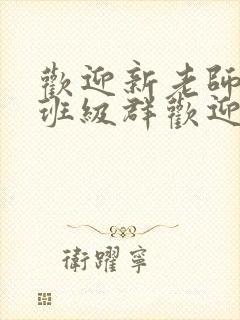 歡迎新老師
班級群歡迎
衛躍寧